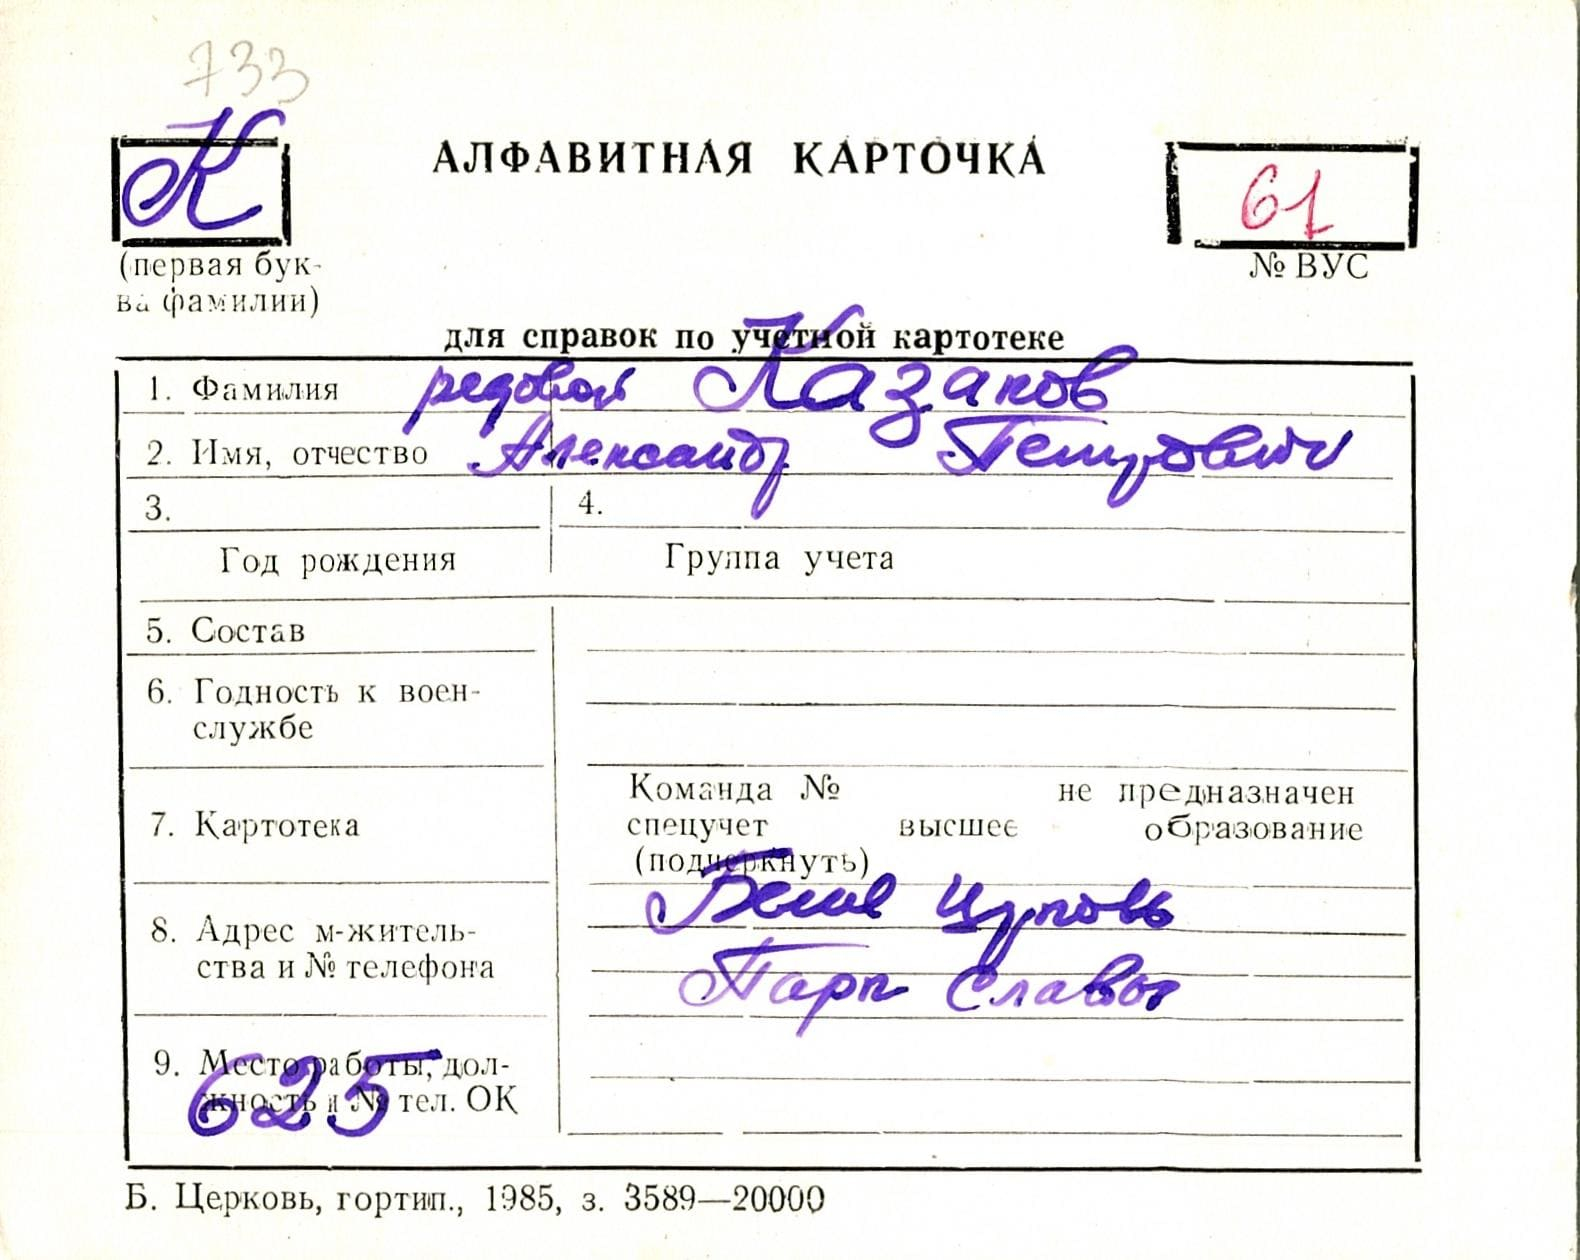 733
К
АЛФАВИТНАЯ КАРТОЧКА
61
(первая бук-
ва фамилии)
№ ВУС
для справок по учетной картотеке
1. Фамилия рядовой Казаков
2. Имя, отчество Александр Петрович
3.
4.
Год рождения
Группа учета
5. Состав
6. Годность к воен-
службе
7. Картотека
Команда № не предназначен
спецучет высшее образование
(подчеркнуть)
8. Адрес м-житель-
ства и № телефона
Белая Церковь
Парк Славы
9. Место работы, дол-
жность и № тел. ОК
625
Б. Церковь, гортип., 1985, з. 3589—20000